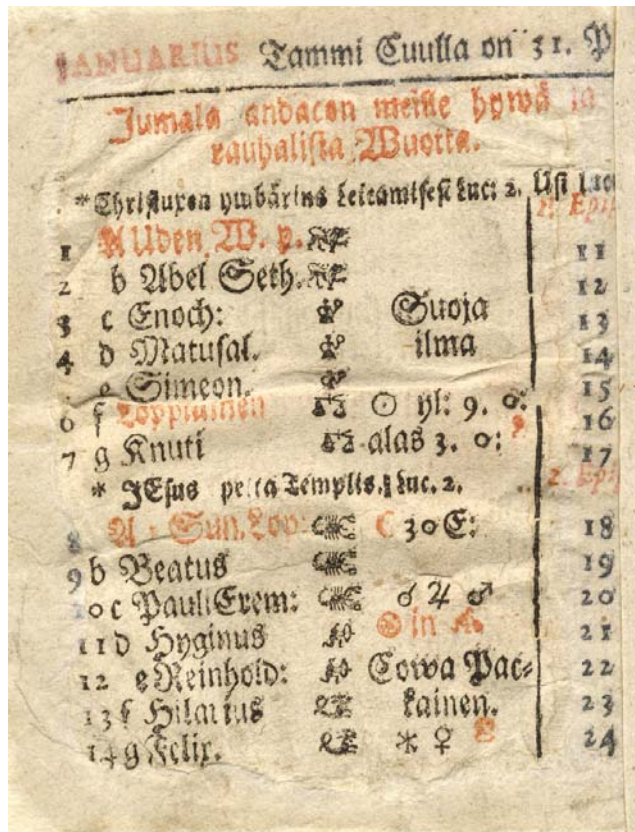 JANUARIUS Tammi Cuulla on 31. P
Jumala andacon meille hywä ja
rauhalista Wuotta.
*Christuxen ymbärins leickamisest Luc: 2.
1 A Uden W. p. 11
2 b Abel Seth. 12
3 c Enoch: Suoja 13
4 d Matusal. ilma 14
e Simeon. 15
6 f Loppiainen ☉ yl: 9. o: 16
7 g Knuti ♎ alas 3. o: 17
* JEsus Templis. Luc. 2. 2. Epi
8 A 1 Sun. Lop: 30 E: 18
9 b Beatus 19
10 c Pauli Erem: ☌ ♃ ♂ 20
11 d Hyginus ☉ in 21
12 e Reinhold: Cowa Pac- 22
13 f Hilarius kainen. 23
14 g Felix. ⚹ ♀ 24